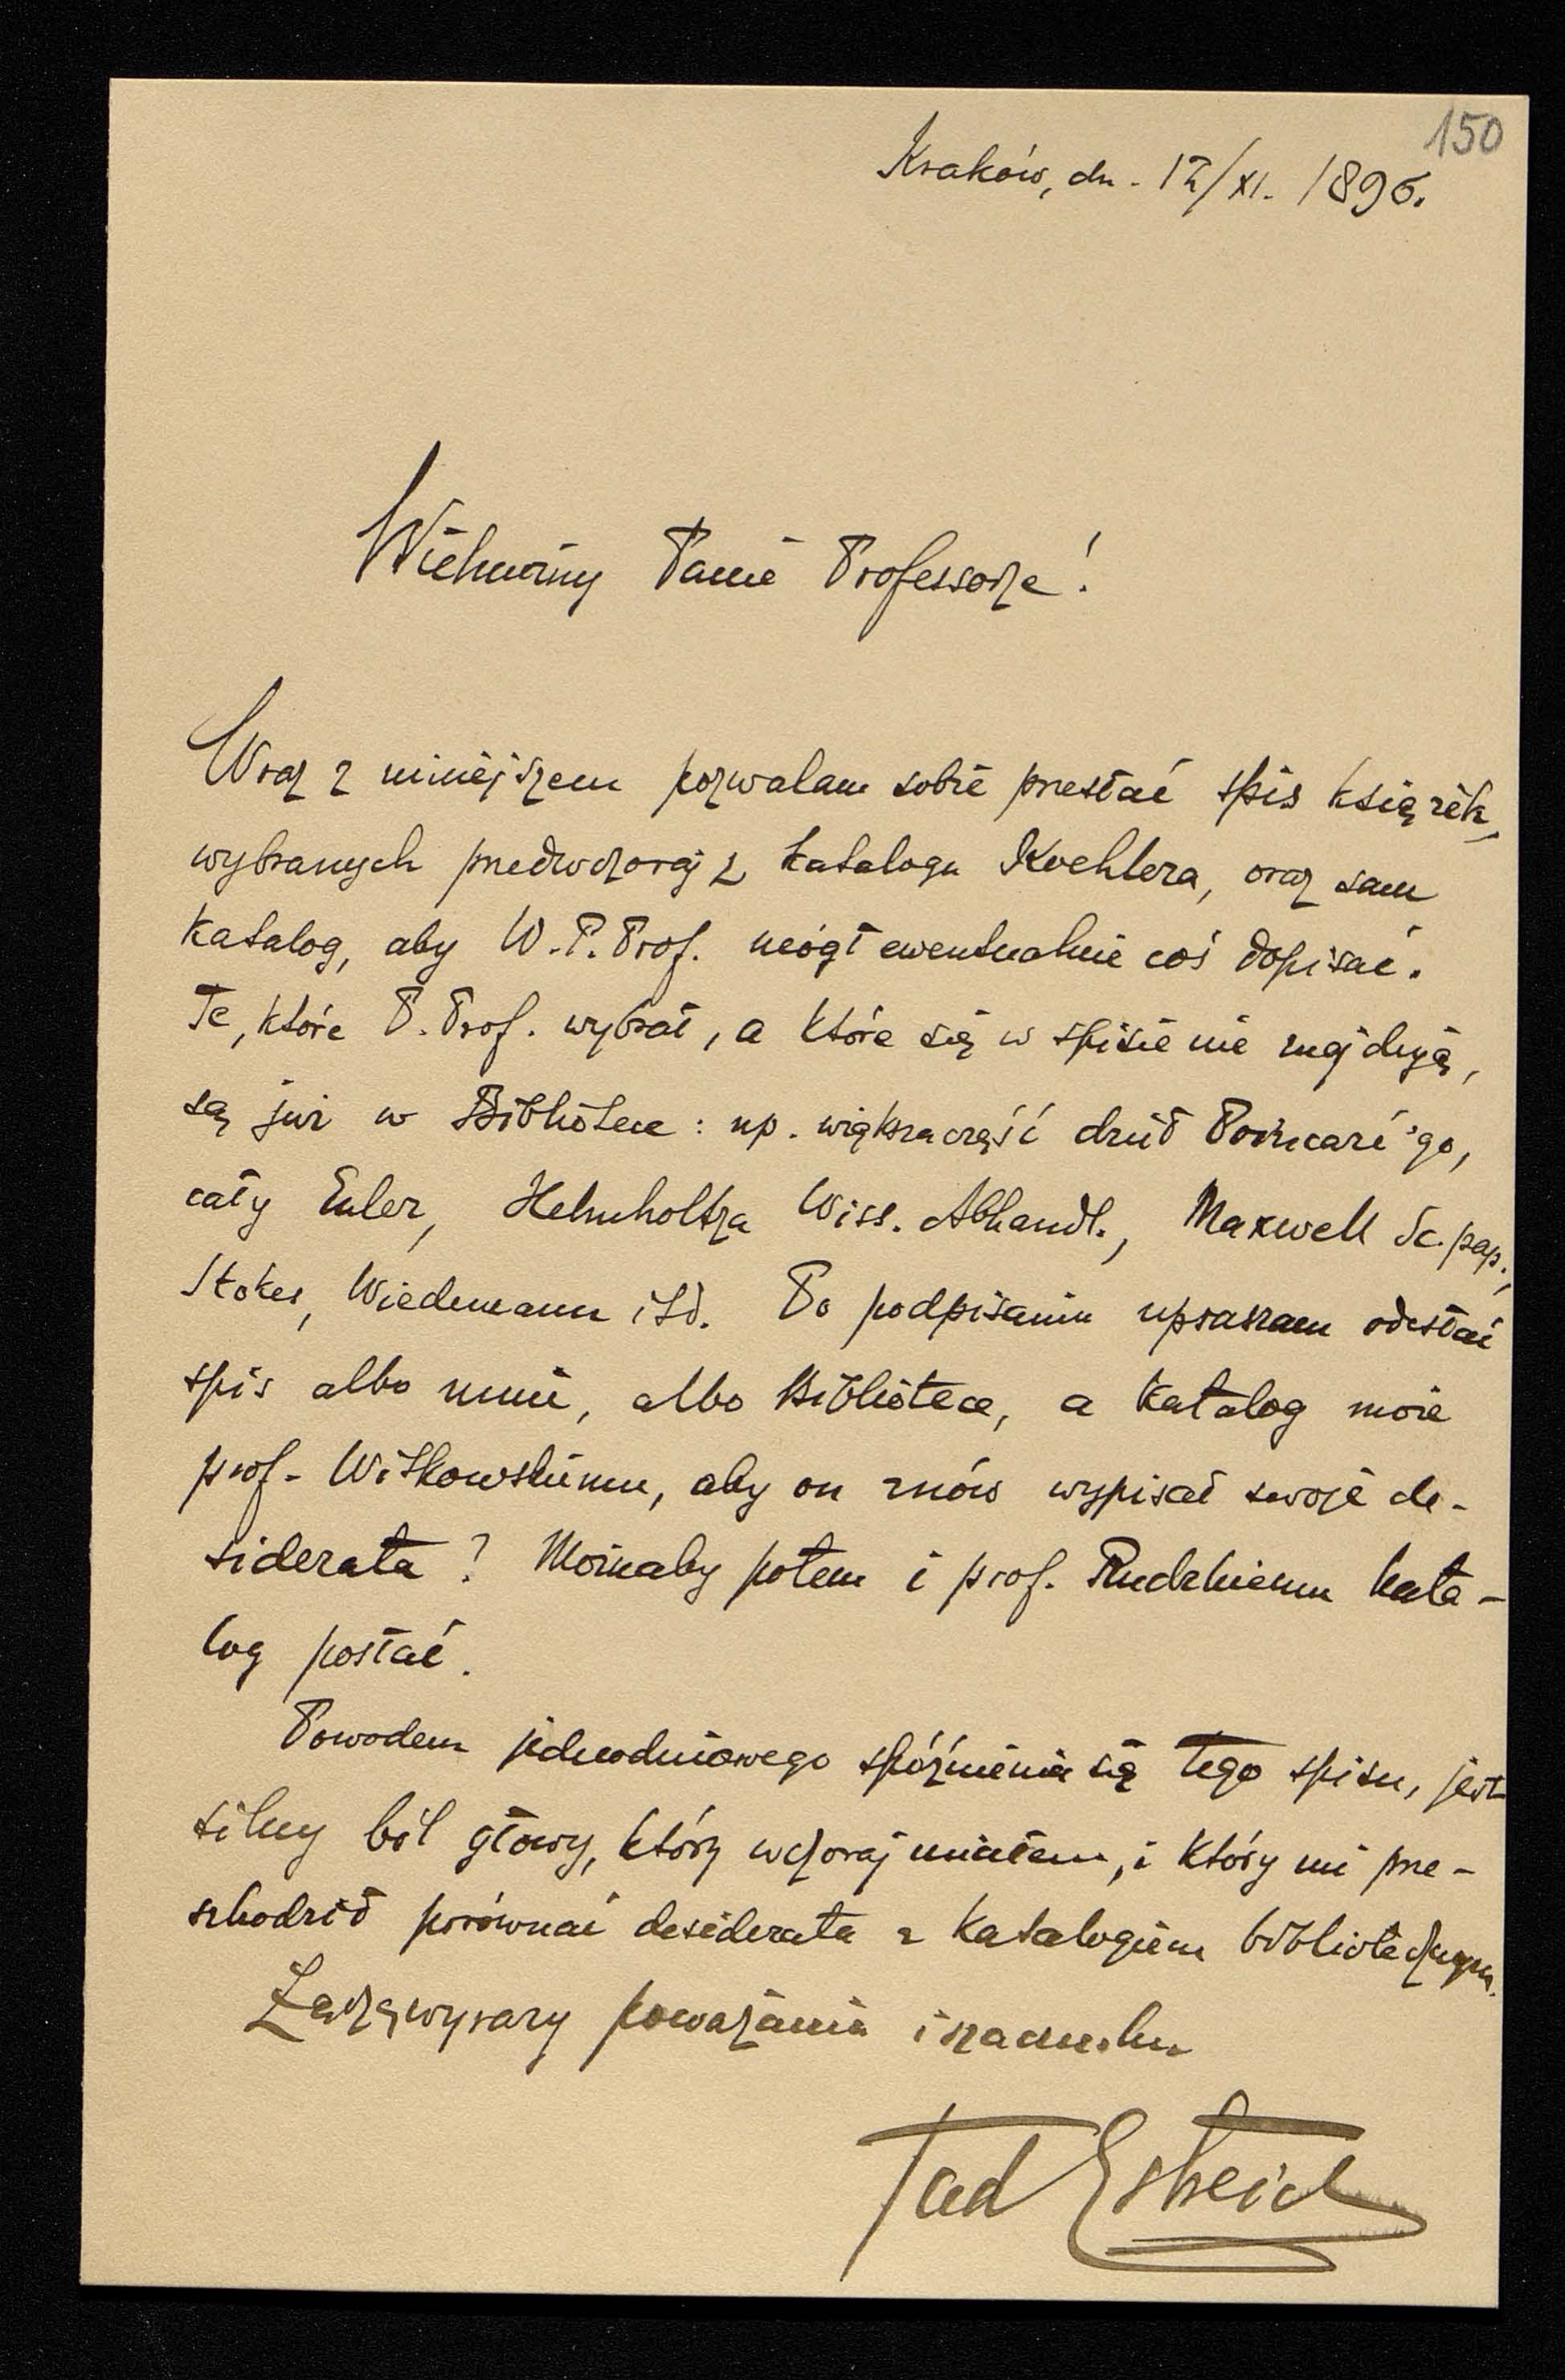 150
Kraków, dn. 12/XI. 1896.
Wielmożny Panie Professorze!
Wraz z niniejszem pozwalam sobie przesłać spis książek,
wybranych przedwczoraj z katalogu Koehlera, oraz sam
katalog, aby W. P. Prof. mógł ewentualnie coś dopisać.
Te, które P. Prof. wybrał, a które się w spisie nie znajdują,
są już w Bibliotece: np. większa część dzieł Poincaré'go,
cały Euler, Helmholtza Wiss. Abhandl., Maxwell Sc. pap.,
Stokes, Wiedemann itd. Po podpisaniu upraszam odesłać
spis albo mnie, albo Bibliotece, a katalog może
prof. Witkowskiemu, aby on znów wypisał swoje de-
siderata? Możnaby potem i prof. Rudzkiemu kata-
log posłać.
Powodem jednodniowego spóźnienia się tego spisu, jest
silny ból głowy, który wczoraj miałem, i który mi prze-
szkodził porównać desiderata z katalogiem bibliotecznym.
Łączę wyrazy poważania i szacunku
Tad Estreich